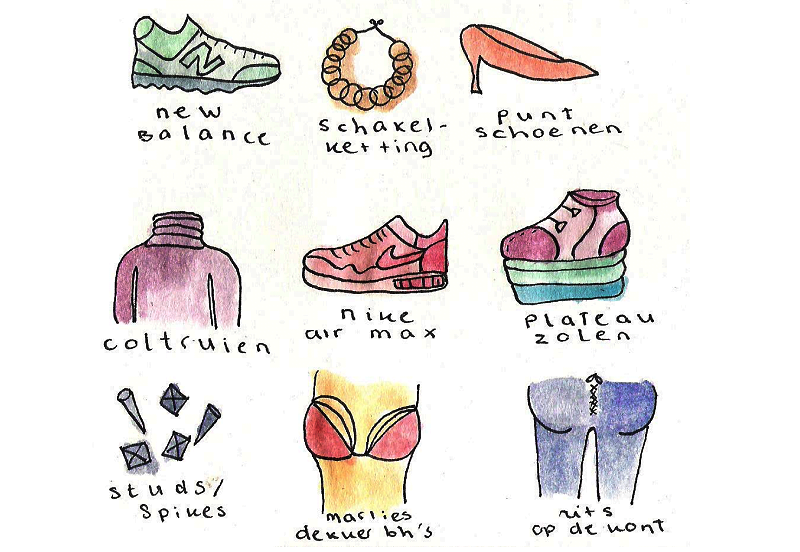 new
Balance
schakel-
ketting
punt
schoenen
coltruien
nike
air max
plateau
zolen
studs/
spikes
marlies
dekker bh's
rits
op de kont